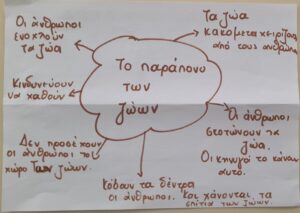 Οι άνθρωποι
ενοχλούν
τα ζώα
Τα ζώα
κακομεταχειρίζονται
από τους ανθρώπους
Το παράπονο
των
ζώων
Κινδυνεύουν
να χαθούν
Οι άνθρωποι
σκοτώνουν τα
ζώα.
Οι κυνηγοί το κάνουν
αυτό.
Δεν προσέχουν
οι άνθρωποι το
χώρο των ζώων.
Κόβουν τα δέντρα
οι άνθρωποι. Και χάνονται τα
σπίτια των ζώων.